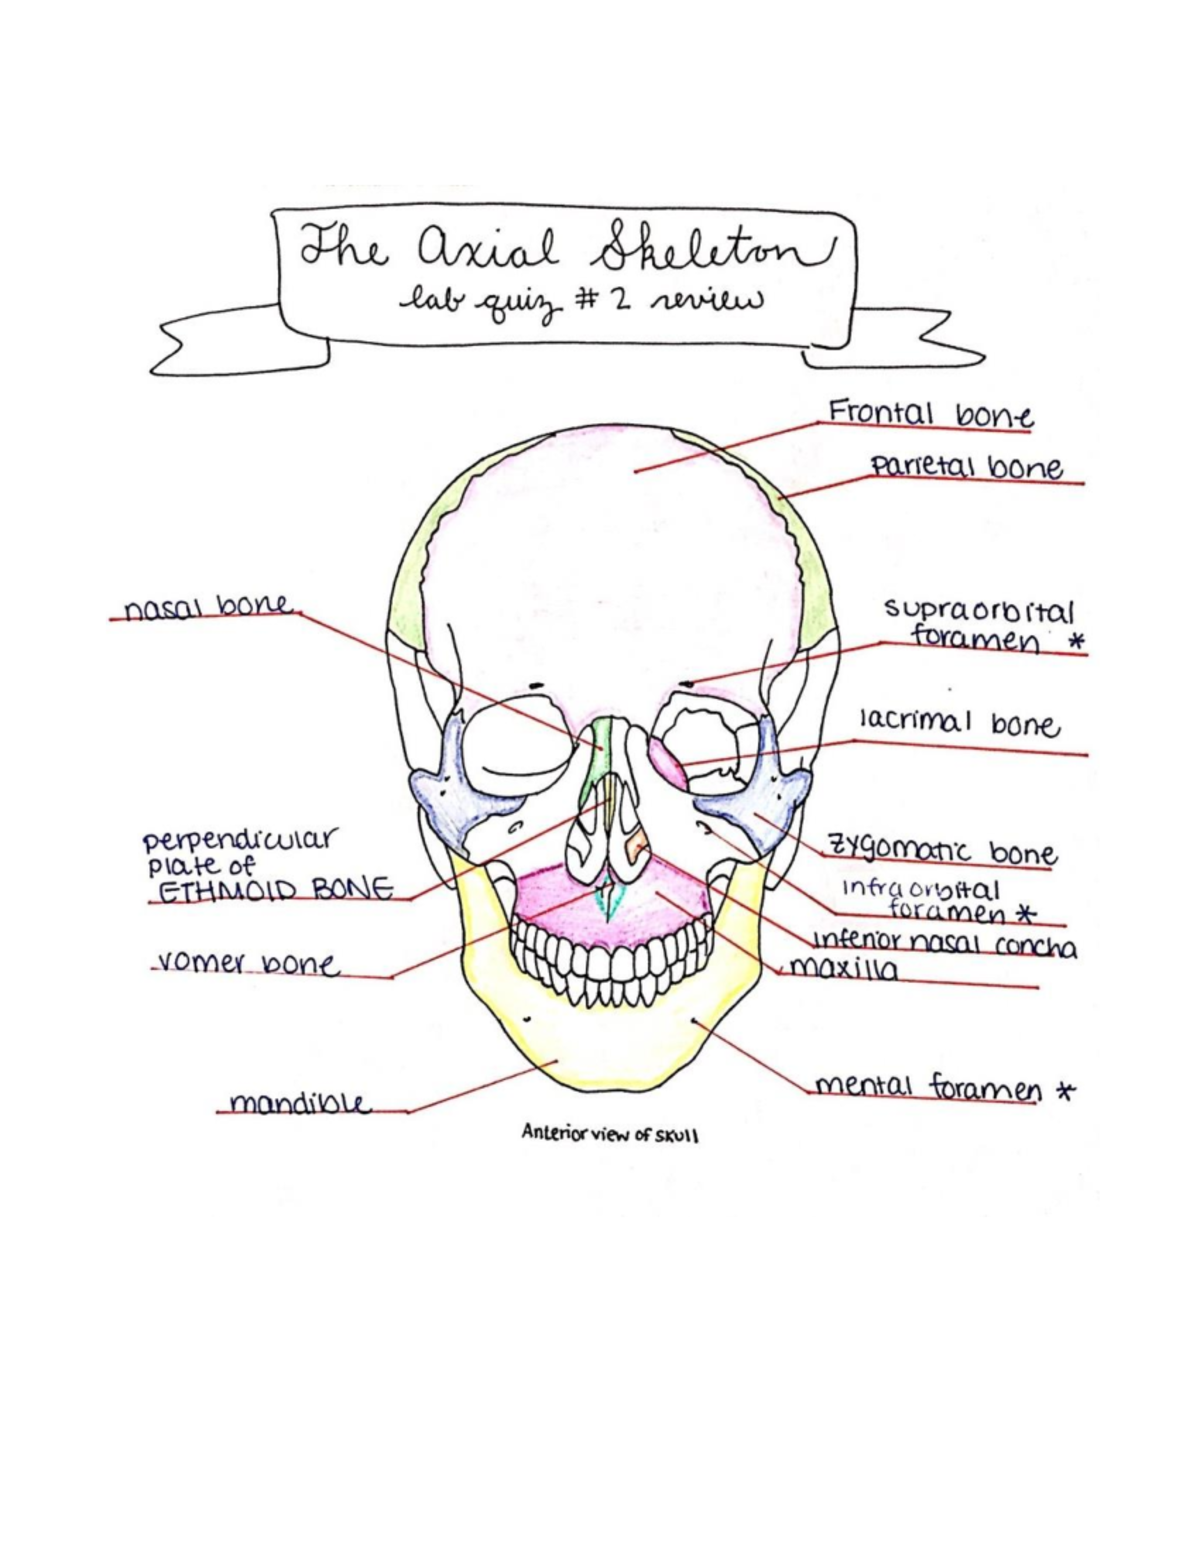 The Axial Skeleton
lab quiz # 2 review
Frontal bone
parietal bone
nasal bone
supraorbital
foramen *
lacrimal bone
perpendicular
plate of
ETHMOID BONE
zygomatic bone
infraorbital
foramen *
inferior nasal concha
vomer bone
maxilla
mandible
mental foramen *
Anterior view of skull